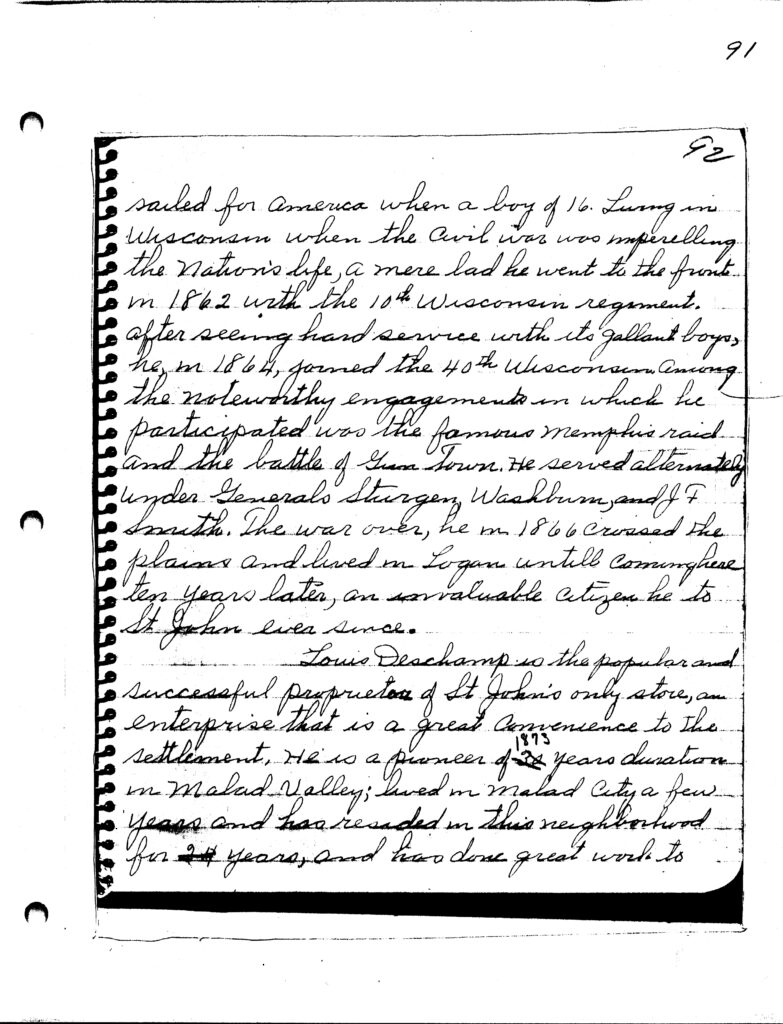 91
92
sailed for America when a boy of 16. Living in
Wisconsin when the Civil war was imperelling
the Nation's life, a mere lad he went to the front
in 1862 with the 10th Wisconsin regiment.
after seeing hard service with its gallant boys,
he, in 1864, joined the 40th Wisconsin. Among
the noteworthy engagements in which he
participated was the famous Memphis raid
and the battle of Gun Town. He served alternately
under Generals Sturgen, Washburn, and J F
Smith. The war over, he in 1866 crossed the
plains and lived in Logan untill coming here
ten years later, an invaluable citizen he to
St John ever since.
Louis Deschamp is the popular and
successful proprietor of St John's only store, an
enterprise that is a great convenience to the
1873
settlement, He is a pioneer of years duration
in Malad Valley; lived in Malad City a few
years and has resided in this neighborhood
for 24 years, and has done great work to